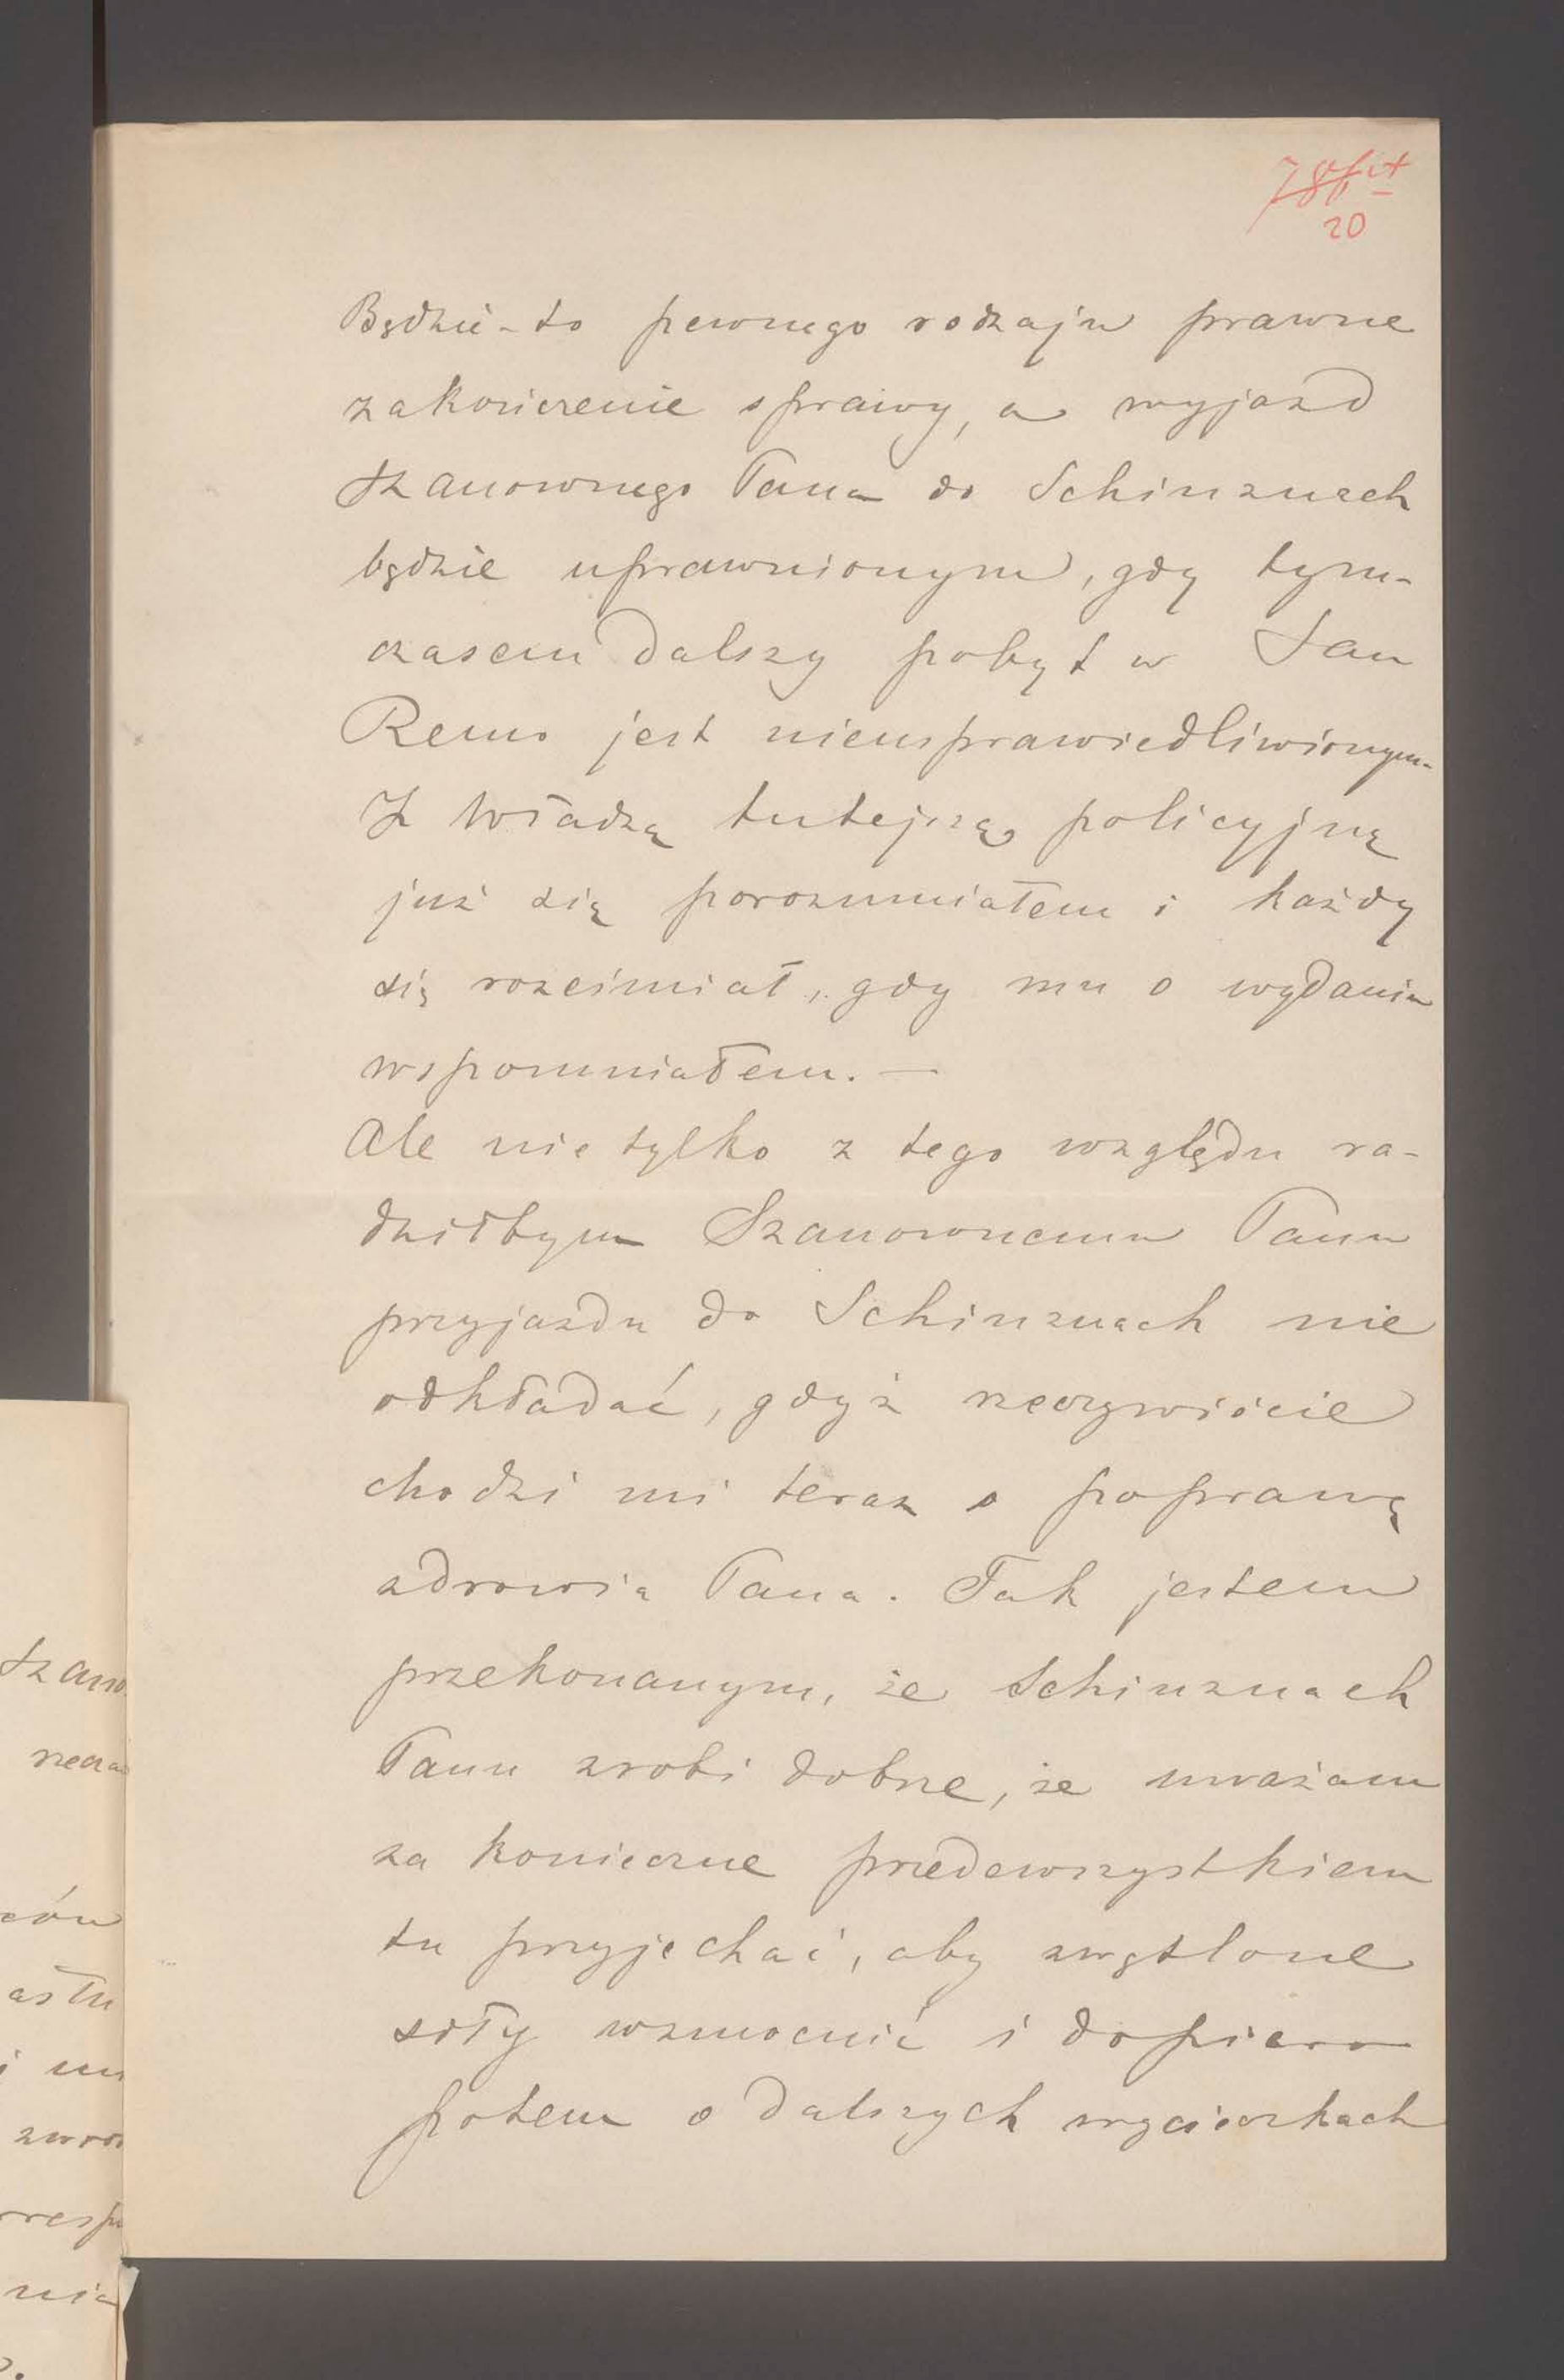 20
Będzie-to pewnego rodzaju prawne
zakończenie sprawy, a wyjazd
Szanownego Pana do Schinznach
będzie uprawnionym, gdy tym-
czasem dalszy pobyt w San
Remo jest nieusprawiedliwionym.
Z władzą tutejszą policyjną
już się porozumiałem i każdy
się rozśmiał, gdy mu o wydaniu
wspomniałem. —
Ale nie tylko z tego względu ra-
dziłbym Szanownemu Panu
przyjazdu do Schinznach nie
odkładać, gdyż rzeczywiście
chodzi mi teraz o poprawę
zdrowia Pana. Tak jestem
przekonanym, że Schinznach
Panu zrobi dobrze, że uważam
za konieczne przedewszystkiem
tu przyjechać, aby zwątlone
siły wzmocnić i dopiero
potem o dalszych wycieczkach